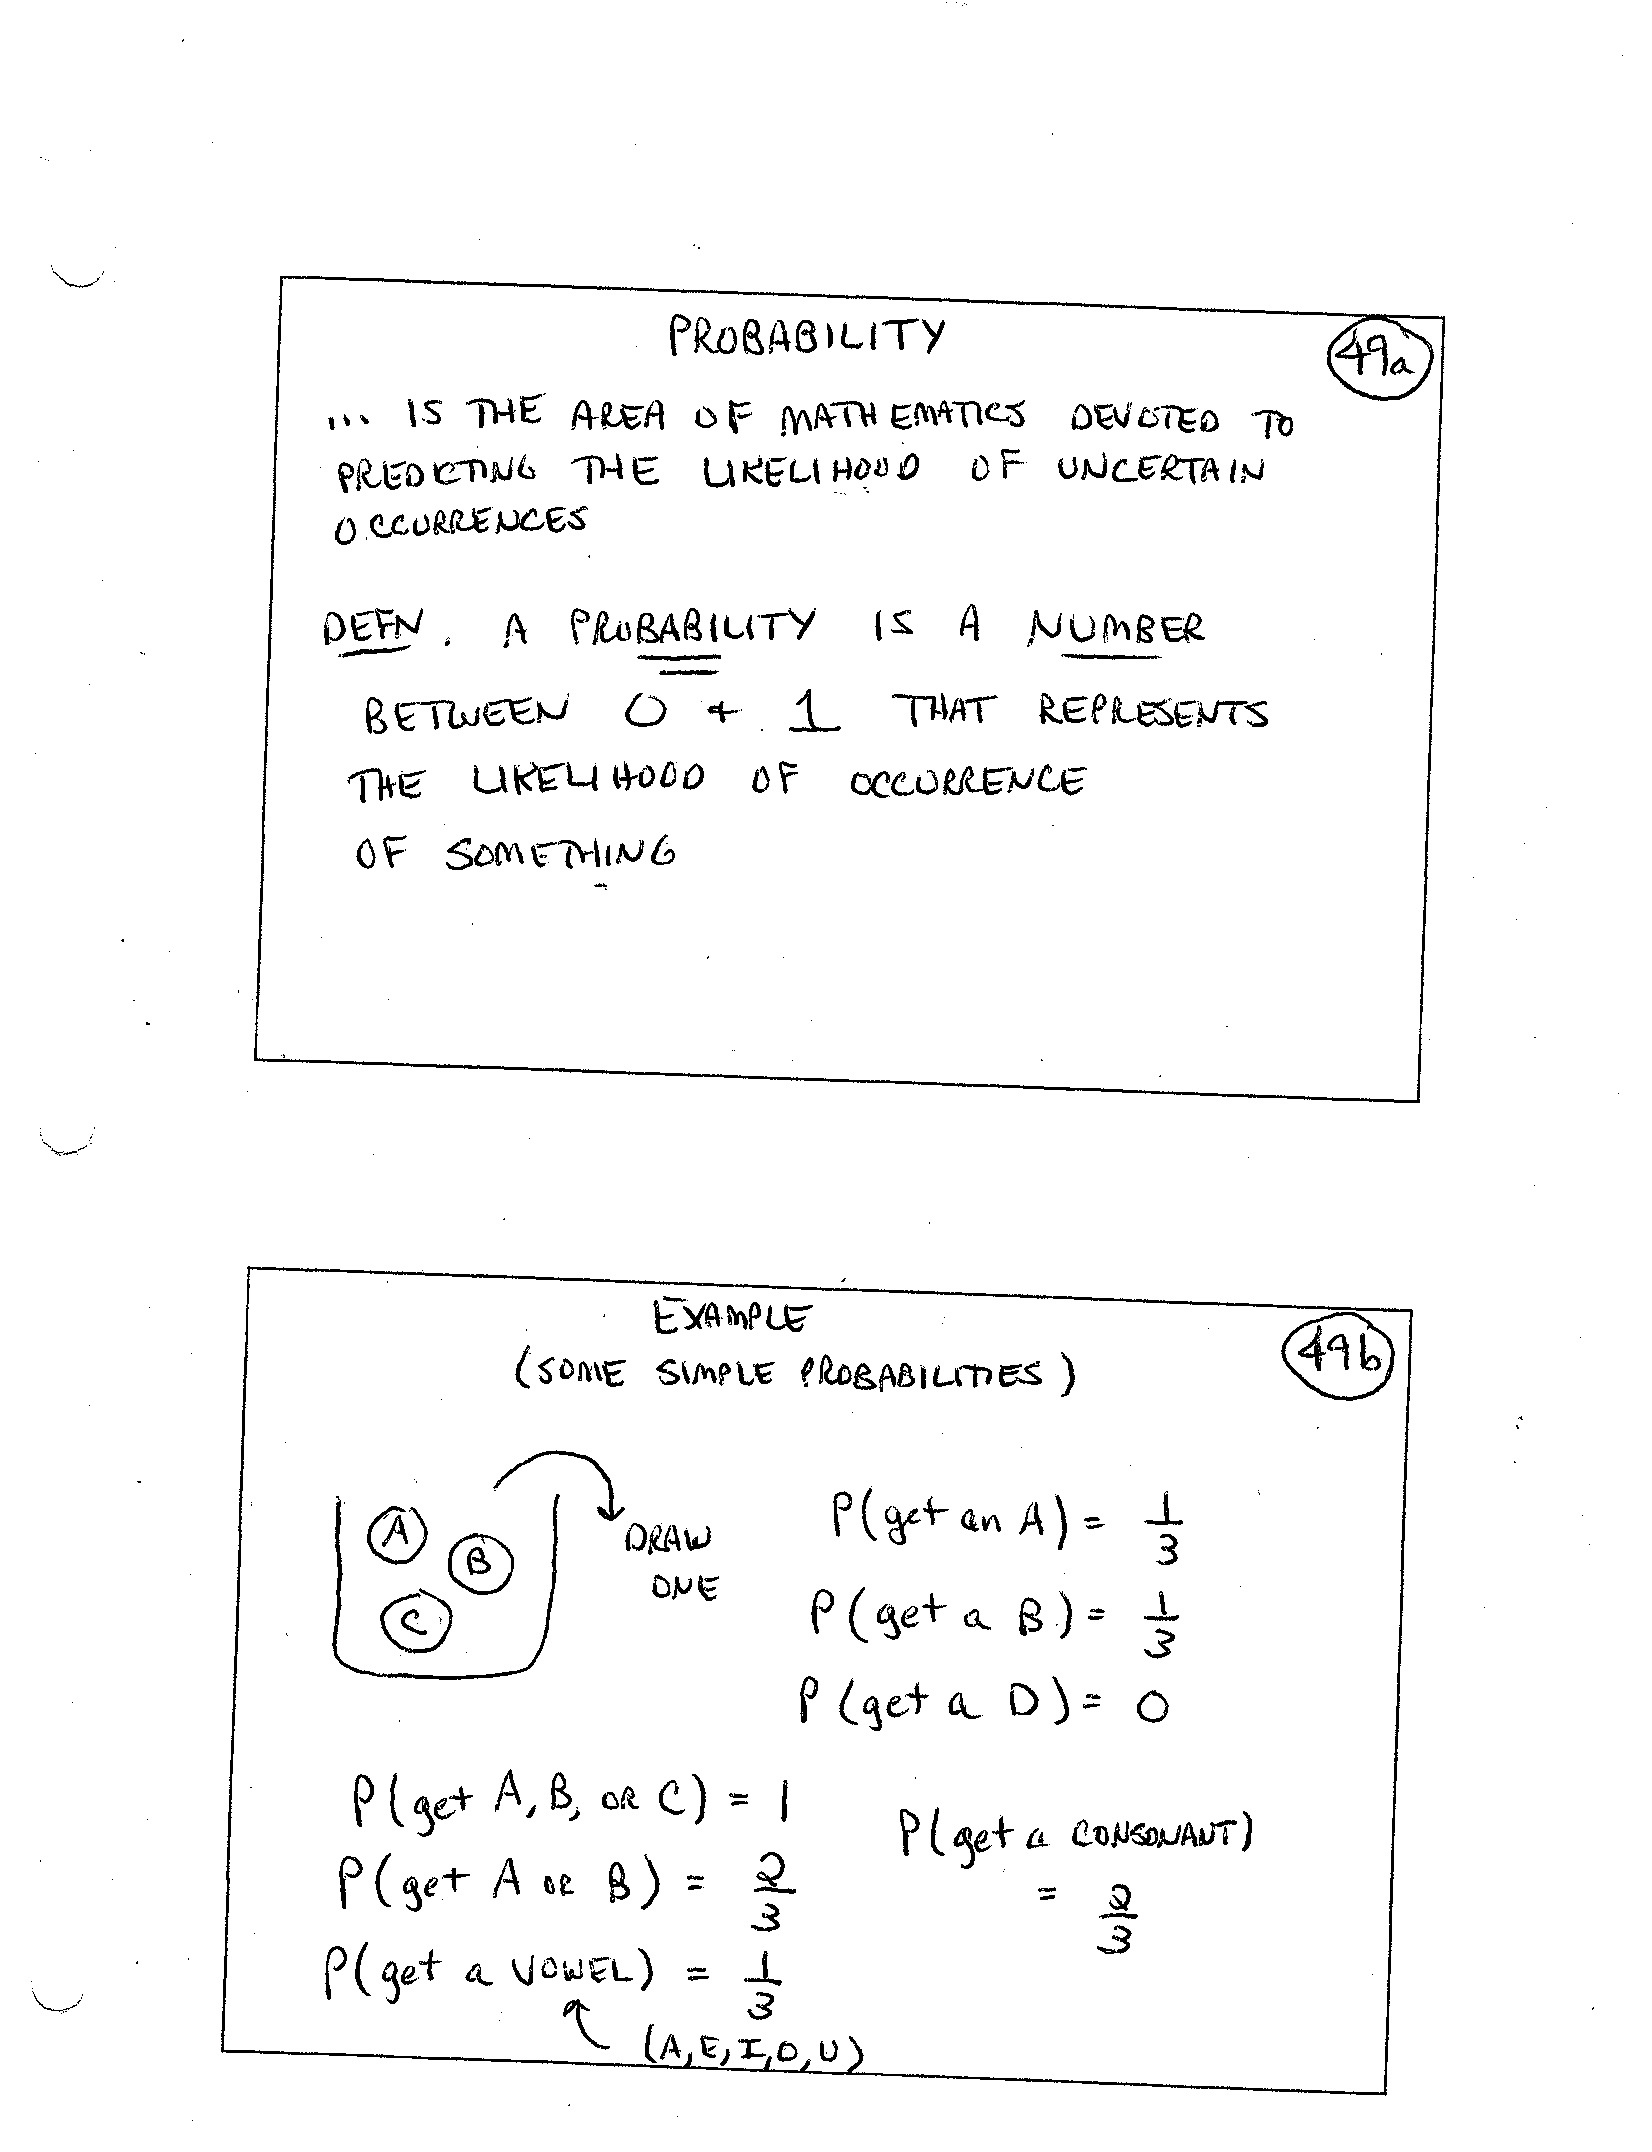 PROBABILITY
49a
... IS THE AREA OF MATHEMATICS DEVOTED TO
PREDICTING THE LIKELIHOOD OF UNCERTAIN
OCCURRENCES
DEFN. A PROBABILITY IS A NUMBER
BETWEEN 0 + 1 THAT REPRESENTS
THE LIKELIHOOD OF OCCURRENCE
OF SOMETHING
EXAMPLE
49b
(SOME SIMPLE PROBABILITIES)
A
B
C
DRAW
ONE
P(get an A) = 1/3
P(get a B) = 1/3
P(get a D) = 0
P(get A, B, OR C) = 1
P(get A OR B) = 2/3
P(get a VOWEL) = 1/3
(A, E, I, O, U)
P(get a CONSONANT)
= 2/3